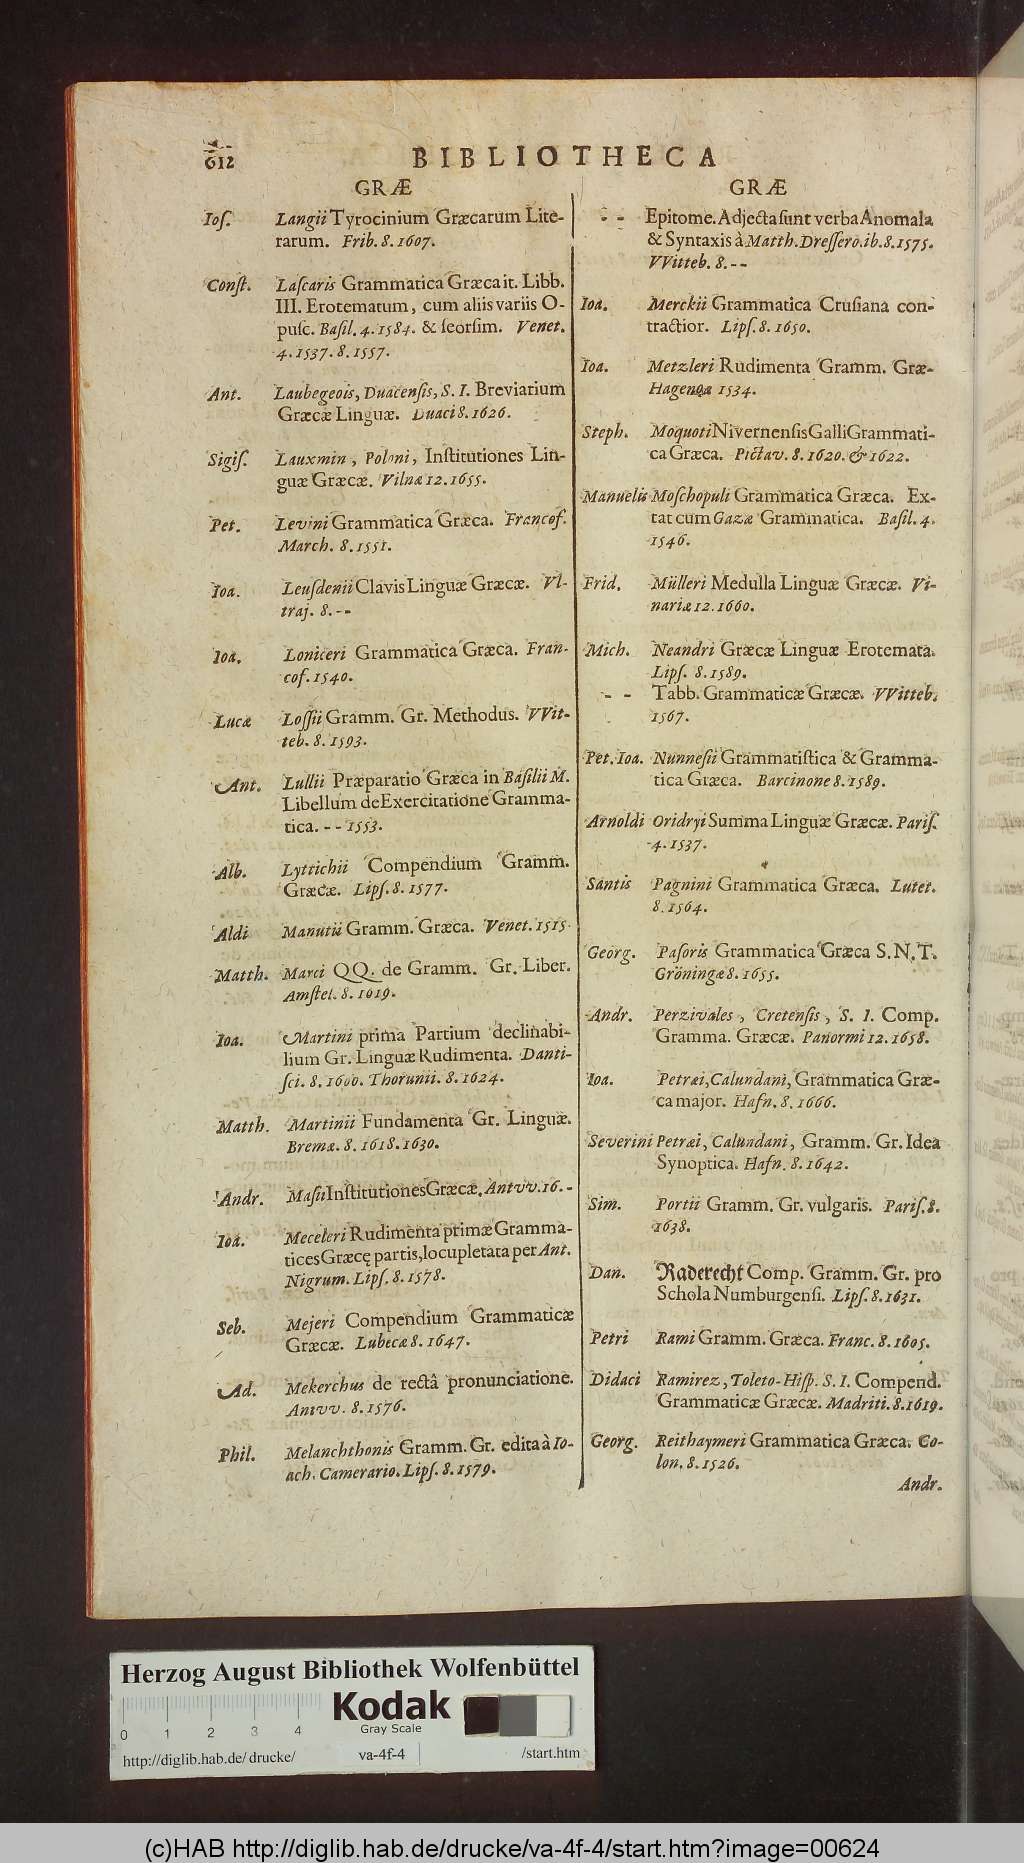 612 BIBLIOTHECA
GRÆ
Ioſ. Langii Tyrocinium Græcarum Lite-
rarum. Frib. 8. 1607.
Conſt. Laſcaris Grammatica Græca it. Libb.
III. Erotematum, cum aliis variis O-
puſc. Baſil. 4. 1584. & ſeorſim. Venet.
4. 1537. 8. 1557.
Ant. Laubegeois, Duacenſis, S. I. Breviarium
Græcæ Linguæ. Duaci 8. 1626.
Sigiſ. Lauxmin, Poloni, Inſtitutiones Lin-
guæ Græcæ. Vilnæ 12. 1655.
Pet. Levini Grammatica Græca. Francof.
March. 8. 1551.
Ioa. Leuſdenii Clavis Linguæ Græcæ. Vl-
traj. 8. --
Ioa. Loniceri Grammatica Græca. Fran-
cof. 1540.
Lucæ Loſſii Gramm. Gr. Methodus. VVit-
teb. 8. 1593.
Ant. Lullii Præparatio Græca in Baſilii M.
Libellum de Exercitatione Gramma-
tica. -- 1553.
Alb. Lyttichii Compendium Gramm.
Græcæ. Lipſ. 8. 1577.
Aldi Manutii Gramm. Græca. Venet. 1515.
Matth. Marci QQ. de Gramm. Gr. Liber.
Amſtel. 8. 1619.
Ioa. Martini prima Partium declinabi-
lium Gr. Linguæ Rudimenta. Danti-
ſci. 8. 1600. Thorunii. 8. 1624.
Matth. Martinii Fundamenta Gr. Linguæ.
Bremæ. 8. 1618. 1630.
Andr. Maſii Inſtitutiones Græcæ. Antvv. 16. -
Ioa. Meceleri Rudimenta primæ Gramma-
tices Græcę partis, locupletata per Ant.
Nigrum. Lipſ. 8. 1578.
Seb. Mejeri Compendium Grammaticæ
Græcæ. Lubecæ 8. 1647.
Ad. Mekerchus de rectâ pronunciatione.
Antvv. 8. 1576.
Phil. Melanchthonis Gramm. Gr. edita à Io-
ach. Camerario. Lipſ. 8. 1579.
GRÆ
- - Epitome. Adjecta ſunt verba Anomala
& Syntaxis à Matth. Dreſſero. ib. 8. 1575.
VVitteb. 8. --
Ioa. Merckii Grammatica Cruſiana con-
tractior. Lipſ. 8. 1650.
Ioa. Metzleri Rudimenta Gramm. Græ-
Hagenoæ 1534.
Steph. Moquoti Nivernenſis Galli Grammati-
ca Græca. Pictav. 8. 1620. & 1622.
Manuelis Moſchopuli Grammatica Græca. Ex-
tat cum Gazæ Grammatica. Baſil. 4.
1546.
Frid. Mülleri Medulla Linguæ Græcæ. Vi-
nariæ 12. 1660.
Mich. Neandri Græcæ Linguæ Erotemata.
Lipſ. 8. 1589.
- - Tabb. Grammaticæ Græcæ. VVitteb.
1567.
Pet. Ioa. Nunneſii Grammatiſtica & Gramma-
tica Græca. Barcinone 8. 1589.
Arnoldi Oridryi Summa Linguæ Græcæ. Pariſ.
4. 1537.
Santis Pagnini Grammatica Græca. Lutet.
8. 1564.
Georg. Paſoris Grammatica Græca S. N. T.
Gröningæ 8. 1655.
Andr. Perzivales, Cretenſis, S. I. Comp.
Gramma. Græcæ. Panormi 12. 1658.
Ioa. Petræi, Calundani, Grammatica Græ-
ca major. Hafn. 8. 1666.
Severini Petræi, Calundani, Gramm. Gr. Idea
Synoptica. Hafn. 8. 1642.
Sim. Portii Gramm. Gr. vulgaris. Pariſ. 8.
1638.
Dan. Raderecht Comp. Gramm. Gr. pro
Schola Numburgenſi. Lipſ. 8. 1631.
Petri Rami Gramm. Græca. Franc. 8. 1605.
Didaci Ramirez, Toleto-Hiſp. S. I. Compend.
Grammaticæ Græcæ. Madriti. 8. 1619.
Georg. Reithaymeri Grammatica Græca. Co-
lon. 8. 1526.
Andr.
Herzog August Bibliothek Wolfenbüttel
Kodak
Gray Scale
0 1 2 3 4
http://diglib.hab.de/drucke/ va-4f-4 /start.htm
(c)HAB http://diglib.hab.de/drucke/va-4f-4/start.htm?image=00624